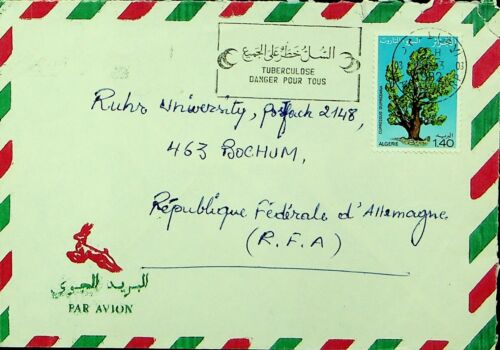 السل خطر على الجميع
TUBERCULOSE
DANGER POUR TOUS
CUPRESSUS DUPREZIANA
ALGERIE
1.40
Ruhr University, postfach 2148,
463 BOCHUM,
République Fédérale d'Allemagne
(R.F.A)
البريد الجوي
PAR AVION